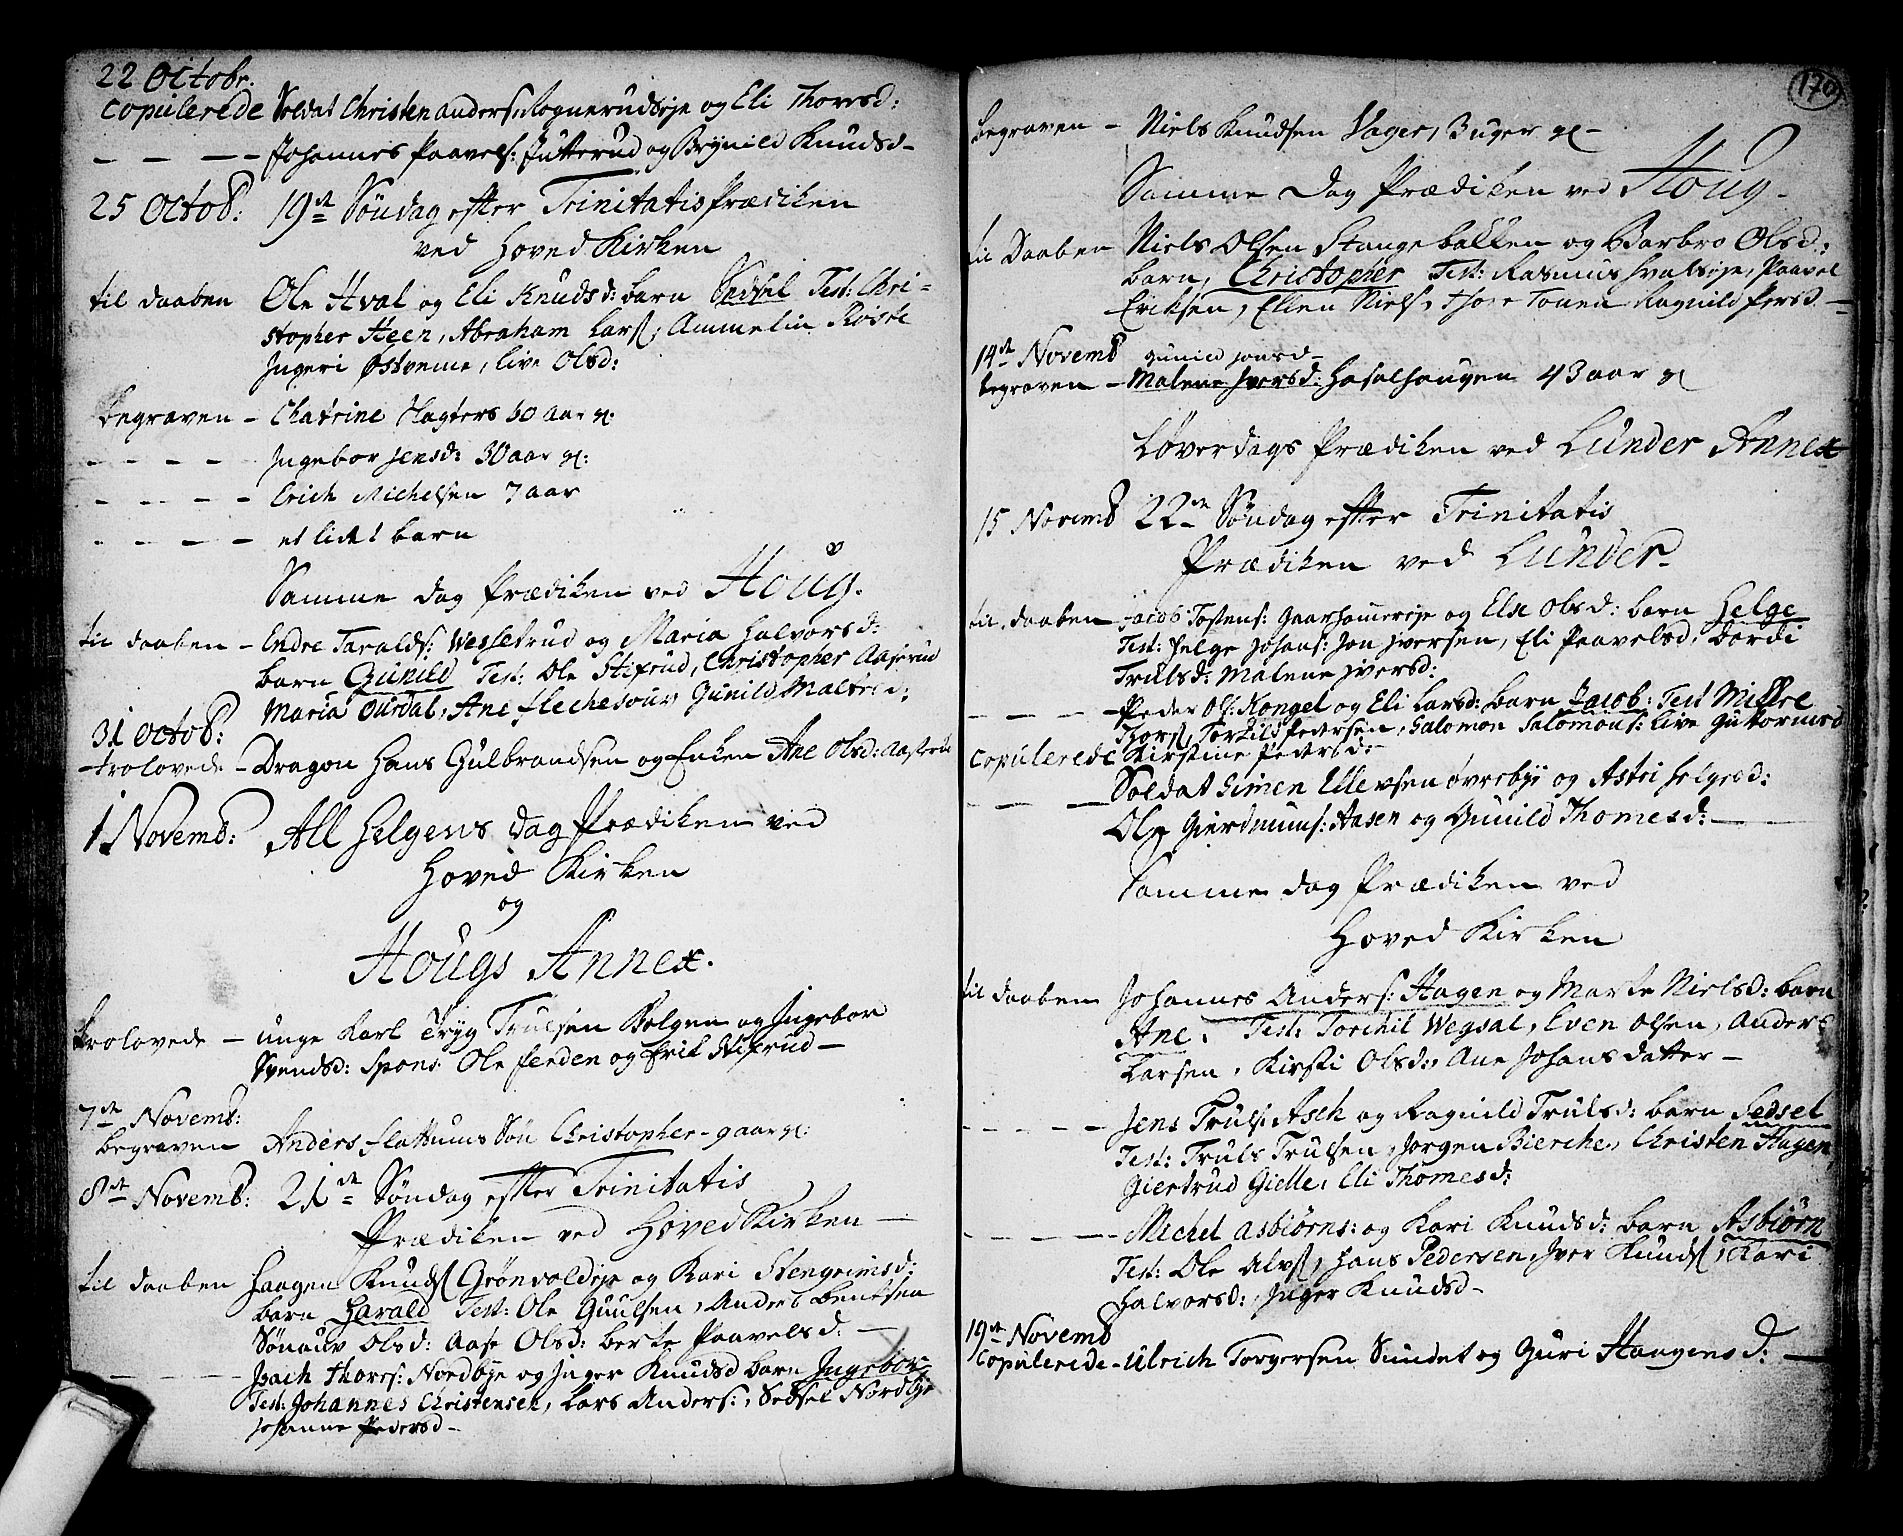 22 Octobr:
Copulerede Soldat Christen Anders: Rognerudeje og Eli Thoresd:
— — — — Johannes Paavels: Jutterud og Brynild Knudsd—
25 Octob: 19de Søndag efter Trinitatis Prædiken
ved Hoved Kirken
til daaben Ole Hval og Eli Knudsd: barn Sedsel Test: Chri-
stopher Heen, Abraham Lars, Ammelin Roste
Ingeri Østveme, Live Olsd:
begraven — Chatrine Slagters 60 aar gl:
— — — — Ingebor Jensd: 30 aar gl:
— — — — Erich Michelsen 7 aar
— — — — et lidet barn
Samme dag Prædiken ved Houg.
til daaben — Endre Taralds: Wesletrud og Maria Halvorsd:
barn Gunild Test: Ole Stifrud, Christopher Aaserud
Maria Ourdal, Ane Flechesouv Gunild Maltesd:
31 Octob:
trolovede — Dragon Hans Gulbrandsen og Enken Ane Olsd:
1 Novemb: All Helgens dag Prædiken ved
Hoved Kirken
og
Hougs Annex.
trolovede — unge Karl Tryg Trulsen Bolgen og Ingebor
Svendsd: Spons: Ole Fenden og Erik Stifrud —
7de Novemb:
begraven Anders Flattums Søn Christopher — 9 aar gl:
8de Novemb: 21de Søndag efter Trinitatis
Prædiken ved Hoved Kirken —
til daaben Haagen Knuds Grönvoldeje og Kari Stengrimsd:
barn Harald Test: Ole Guulsen, Anders Bentsen
Sønauv Olsd: Aase Olsd: Berte Paavelsd: —
— — — — Isach Thores: Nordbye og Inger Knudsd barn Ingebor
Test: Johannes Christensen, Lars Anders: Sedsel Nordbye
Johanne Pedersd—
170
begraven — Niels Knudsen Vager, Buger gl—
Samme Dag Prædiken ved Houg.
til Daaben Niels Olsen Stangebakken og Barbro Olsd:
barn, Christopher Test: Rasmus Hvalseje, Paavel
Eriksen, Ellen Niels, Thore Tonen Ragnild Persd—
14de Novemb Gunild Jonsd—
begraven — Malene Iversd: Hasalhaugen 43 aar gl
Løverdags Prædiken ved Lunder Annex
15 Novemb 22de Søndag efter Trinitatis
Prædiken ved Lunder
til daaben Jacob Tostens: Gaarhamereje og Else Olsd: barn Helge
Test: Helge Johans: Jon Iversen, Eli Paavelsd, Bardi
Trulsd: Malene Iversd:
— — — — Peder Ols: Kongel og Eli Larsd: barn Jacob: Test Mikkel
Thors, Torkild Pedersen, Salomon Salomons: Live Guttormsd
Kirstine Pedersd:
Copulerede Soldat Simen Ellevsen Øvrebye og Astri Helgesd:
— — — Ole Gierdmuns: Aasen og Gunild Thomesd: —
Samme dag Prædiken ved
Hoved Kirken
til daaben Johannes Anders: Hagen og Marte Nielsd: barn
Ane, Test: Torchil Wegsal, Even Olsen, Anders
Larsen, Kirsti Olsd:, Ane Johansdatter —
— — — — Jens Truls: Asch og Ragnild Trulsd: barn Sedsel
Test: Truls Trulsen, Jorgen Bierche, Christen Hagen
Giertrud Gielle, Eli Thomesd:
— — — — Michel Asbiørns: og Kari Knudsd: barn Asbiørn
Test: Ole Alvs, Hans Pedersen, Iver Knuds, Kari
Halvorsd:, Inger Knudsd—
19de Novemb
Copulerede — Ulrich Torgersen Sundet og Guri Haagensd: —